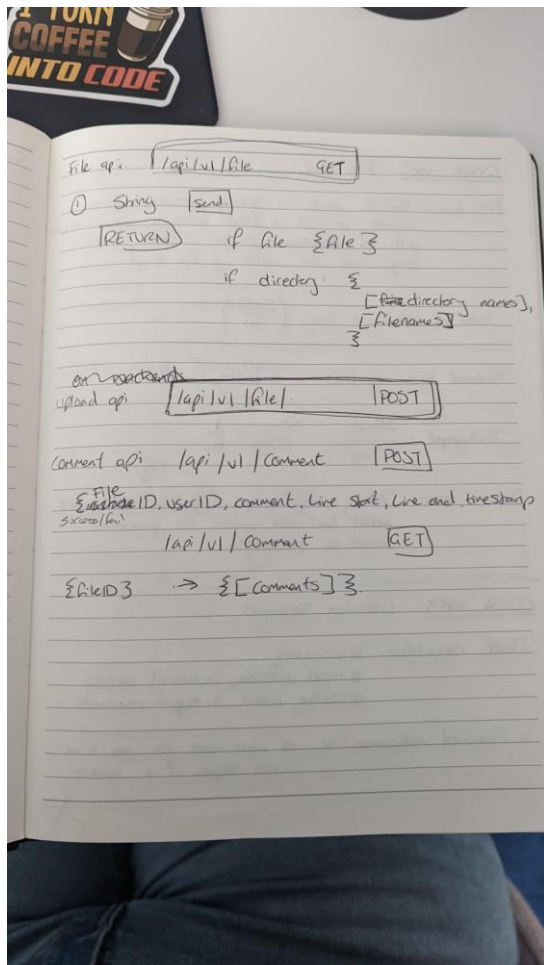 I TURN
COFFEE
INTO CODE
File api /api/v1/file GET
① String send
RETURN if file {file}
if directory: {
[directory names],
[filenames]
}
upload api /api/v1/file/ POST
Comment api /api/v1/Comment POST
{File ID, userID, comment, Line start, Line end, timestamp
success/fail
/api/v1/comment GET
{fileID} → {[Comments]}